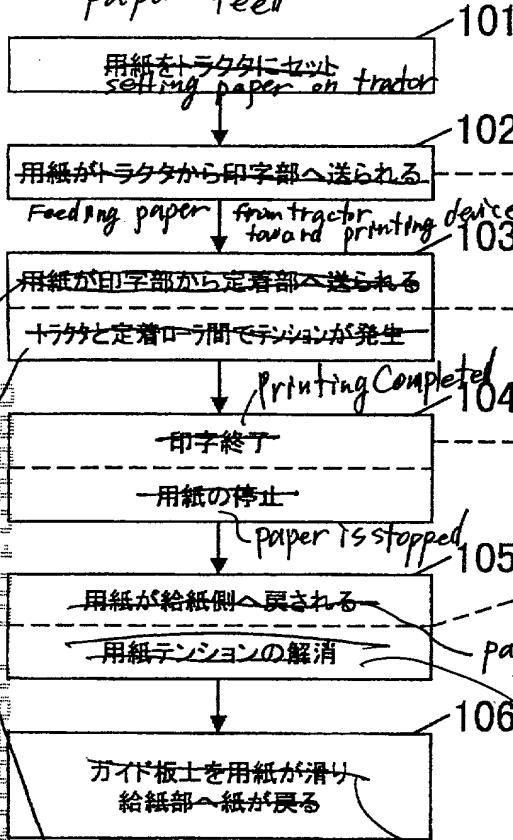 paper feed
101
用紙をトラクタにセット
setting paper on tractor
102
用紙がトラクタから印字部へ送られる
Feeding paper from tractor
toward printing device
103
用紙が印字部から定着部へ送られる
トラクタと定着ローラ間でテンションが発生
printing Completed
104
印字終了
用紙の停止
paper is stopped
105
用紙が給紙側へ戻される
用紙テンションの解消
106
ガイド板士を用紙が滑り
給紙部へ紙が戻る